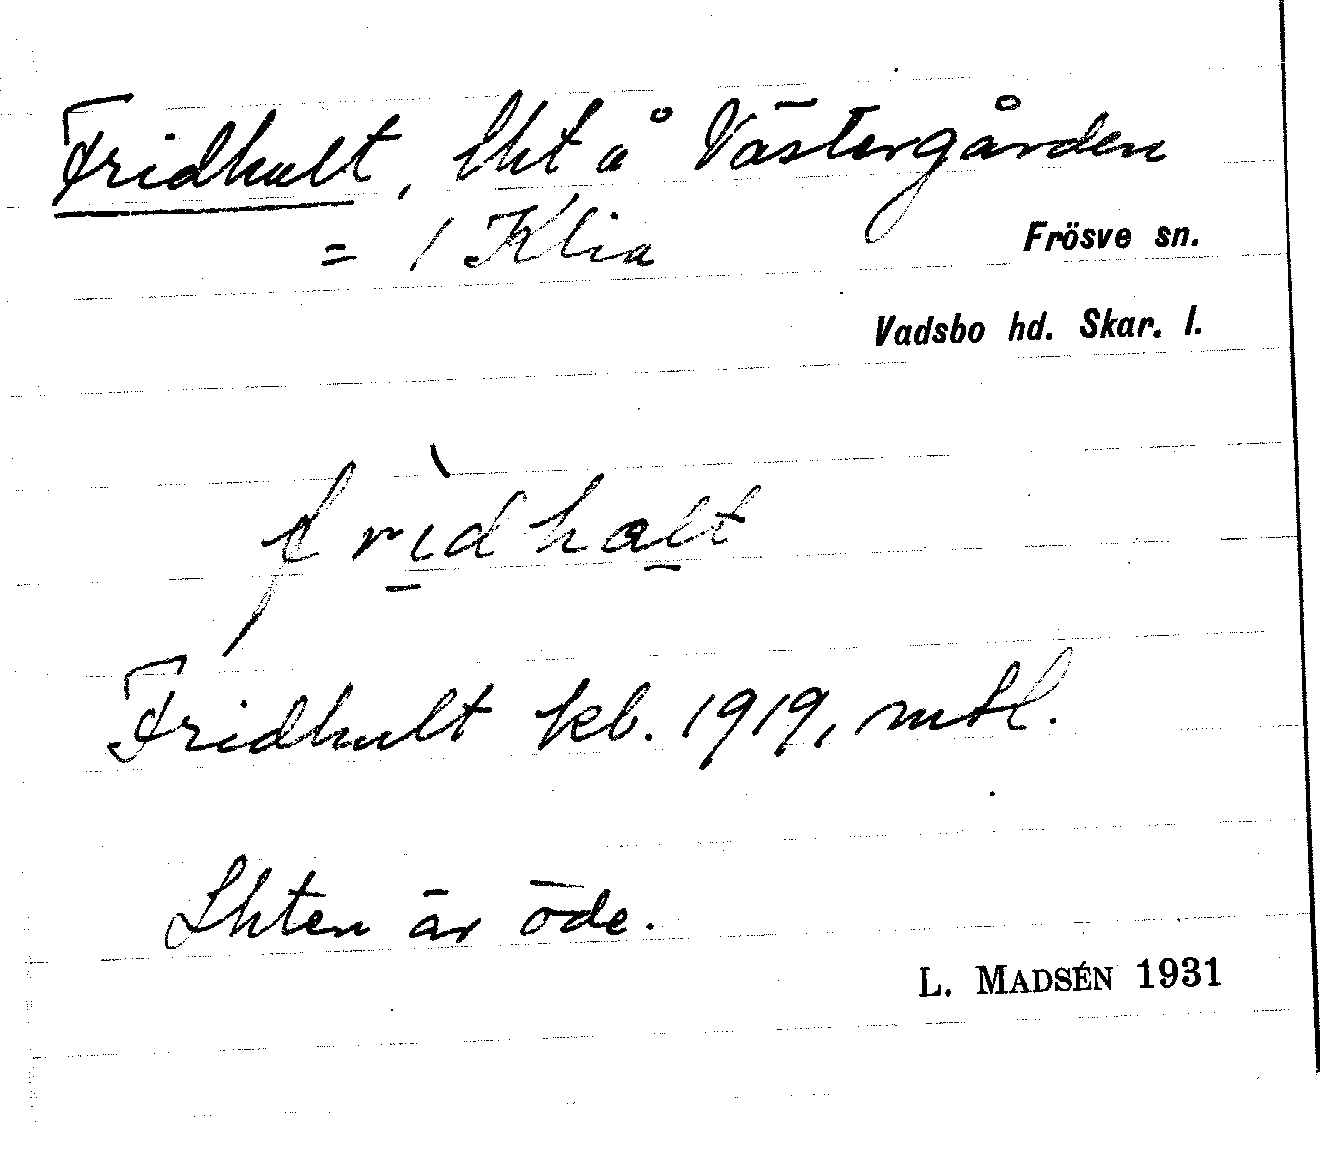 Fridhult, lht å Västergården
= 1 Klia
Frösve sn.
Vadsbo hd. Skar. l.
frìdhalt
Fridhult kb. 1919, mtl.
Lhten är öde.
L. MADSÉN 1931